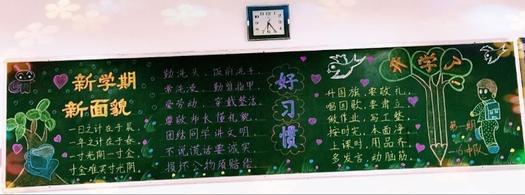 新学期
新面貌
一日之计在于晨
一年之计在于春
一寸光阴一寸金
寸金难买寸光阴
勤洗头、饭前洗手
常洗澡、勤剪指甲
爱劳动、穿戴整洁
尊敬师长懂礼貌
团结同学讲文明
不说谎话要诚实
损坏公物须赔偿
好习惯
开学了
升国旗，要敬礼
唱国歌，要肃立
做作业，写工整
按时完，本面净
上课时，用品齐
多发言，动脑筋
第一期